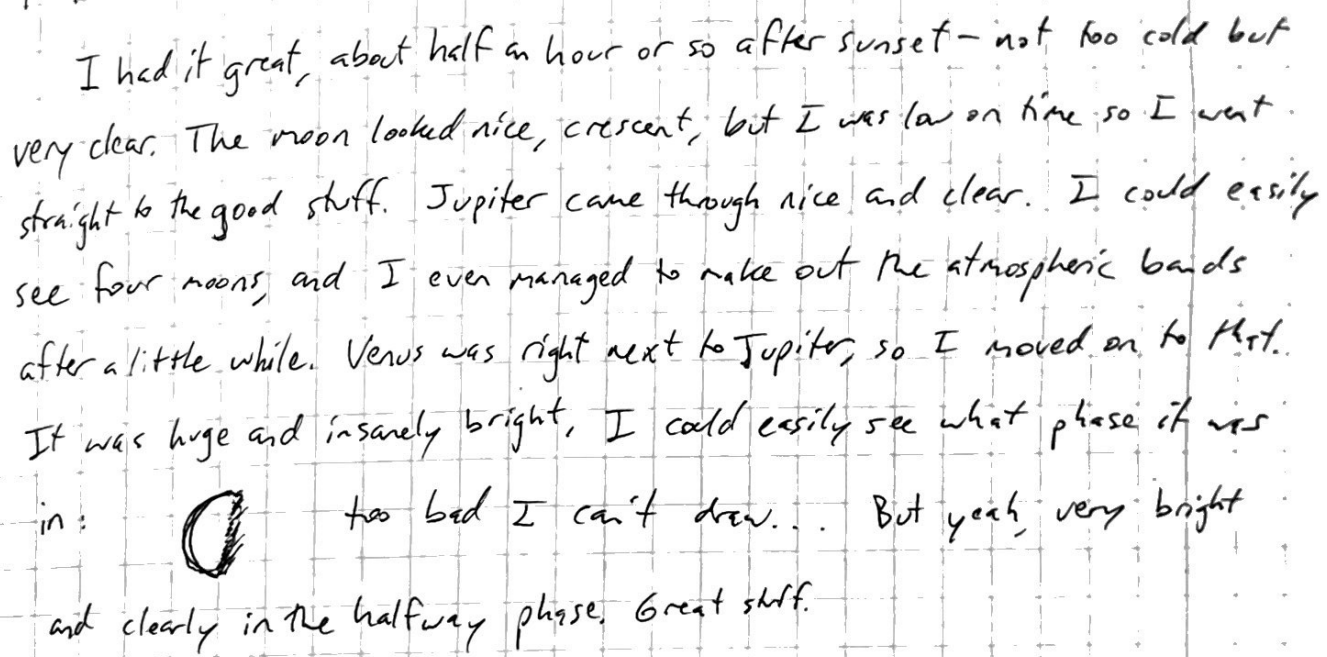 I had it great, about half an hour or so after sunset - not too cold but
very clear. The moon looked nice, crescent, but I was low on time so I went
straight to the good stuff. Jupiter came through nice and clear. I could easily
see four moons, and I even managed to make out the atmospheric bands
after a little while. Venus was right next to Jupiter, so I moved on to that.
It was huge and insanely bright, I could easily see what phase it was
in: too bad I can't draw... But yeah, very bright
and clearly in the halfway phase. Great stuff.